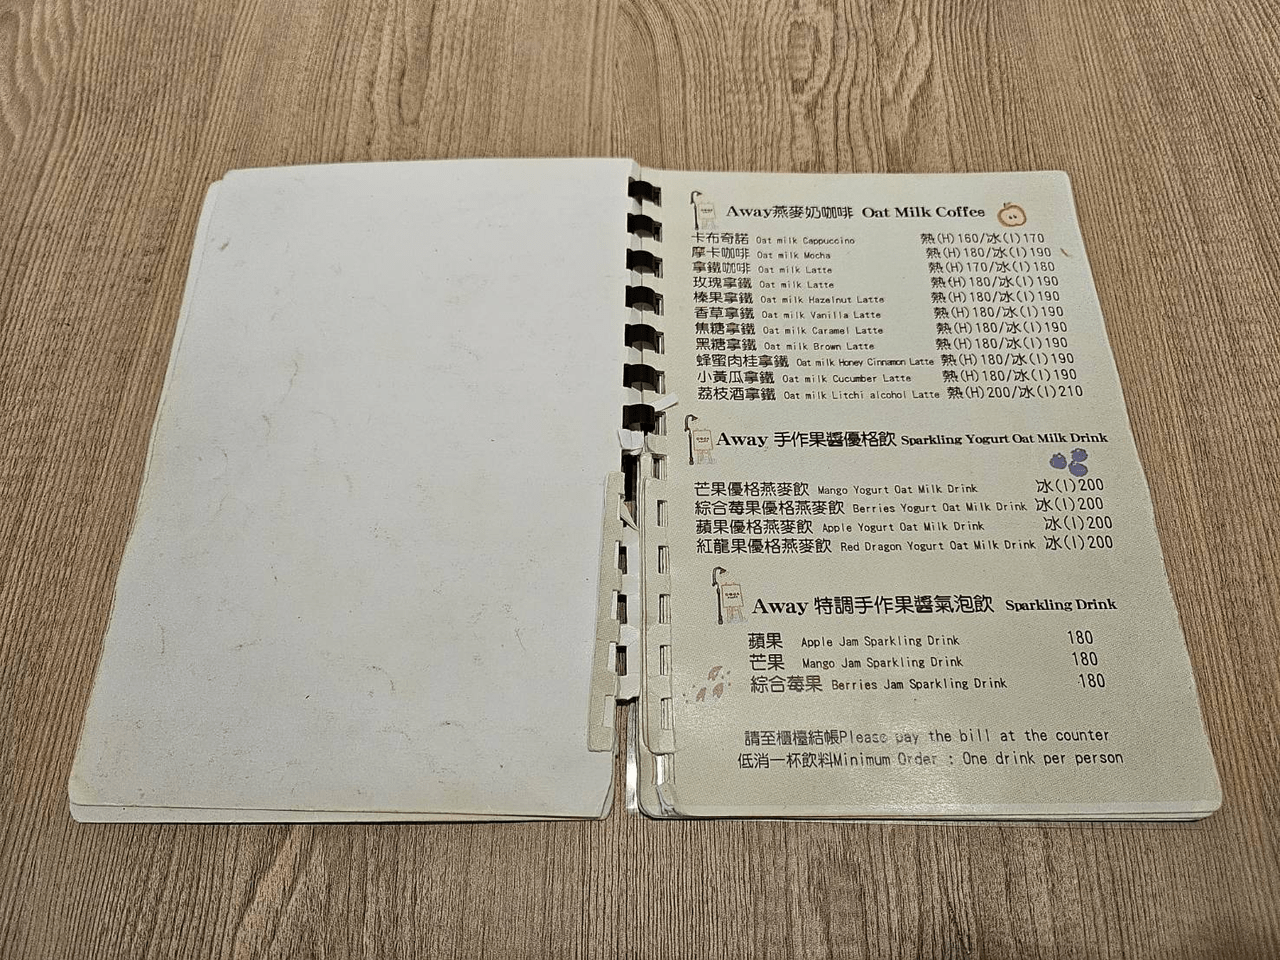 Away燕麥奶咖啡 Oat Milk Coffee
卡布奇諾 Oat milk Cappuccino 熱(H)160/冰(I)170
摩卡咖啡 Oat milk Mocha 熱(H)180/冰(I)190
拿鐵咖啡 Oat milk Latte 熱(H)170/冰(I)180
玫瑰拿鐵 Oat milk Latte 熱(H)180/冰(I)190
榛果拿鐵 Oat milk Hazelnut Latte 熱(H)180/冰(I)190
香草拿鐵 Oat milk Vanilla Latte 熱(H)180/冰(I)190
焦糖拿鐵 Oat milk Caramel Latte 熱(H)180/冰(I)190
黑糖拿鐵 Oat milk Brown Latte 熱(H)180/冰(I)190
蜂蜜肉桂拿鐵 Oat milk Honey Cinnamon Latte 熱(H)180/冰(I)190
小黃瓜拿鐵 Oat milk Cucumber Latte 熱(H)180/冰(I)190
荔枝酒拿鐵 Oat milk Litchi alcohol Latte 熱(H)200/冰(I)210
Away 手作果醬優格飲 Sparkling Yogurt Oat Milk Drink
芒果優格燕麥飲 Mango Yogurt Oat Milk Drink 冰(I)200
綜合莓果優格燕麥飲 Berries Yogurt Oat Milk Drink 冰(I)200
蘋果優格燕麥飲 Apple Yogurt Oat Milk Drink 冰(I)200
紅龍果優格燕麥飲 Red Dragon Yogurt Oat Milk Drink 冰(I)200
Away 特調手作果醬氣泡飲 Sparkling Drink
蘋果 Apple Jam Sparkling Drink 180
芒果 Mango Jam Sparkling Drink 180
綜合莓果 Berries Jam Sparkling Drink 180
請至櫃檯結帳Please pay the bill at the counter
低消一杯飲料Minimum Order : One drink per person